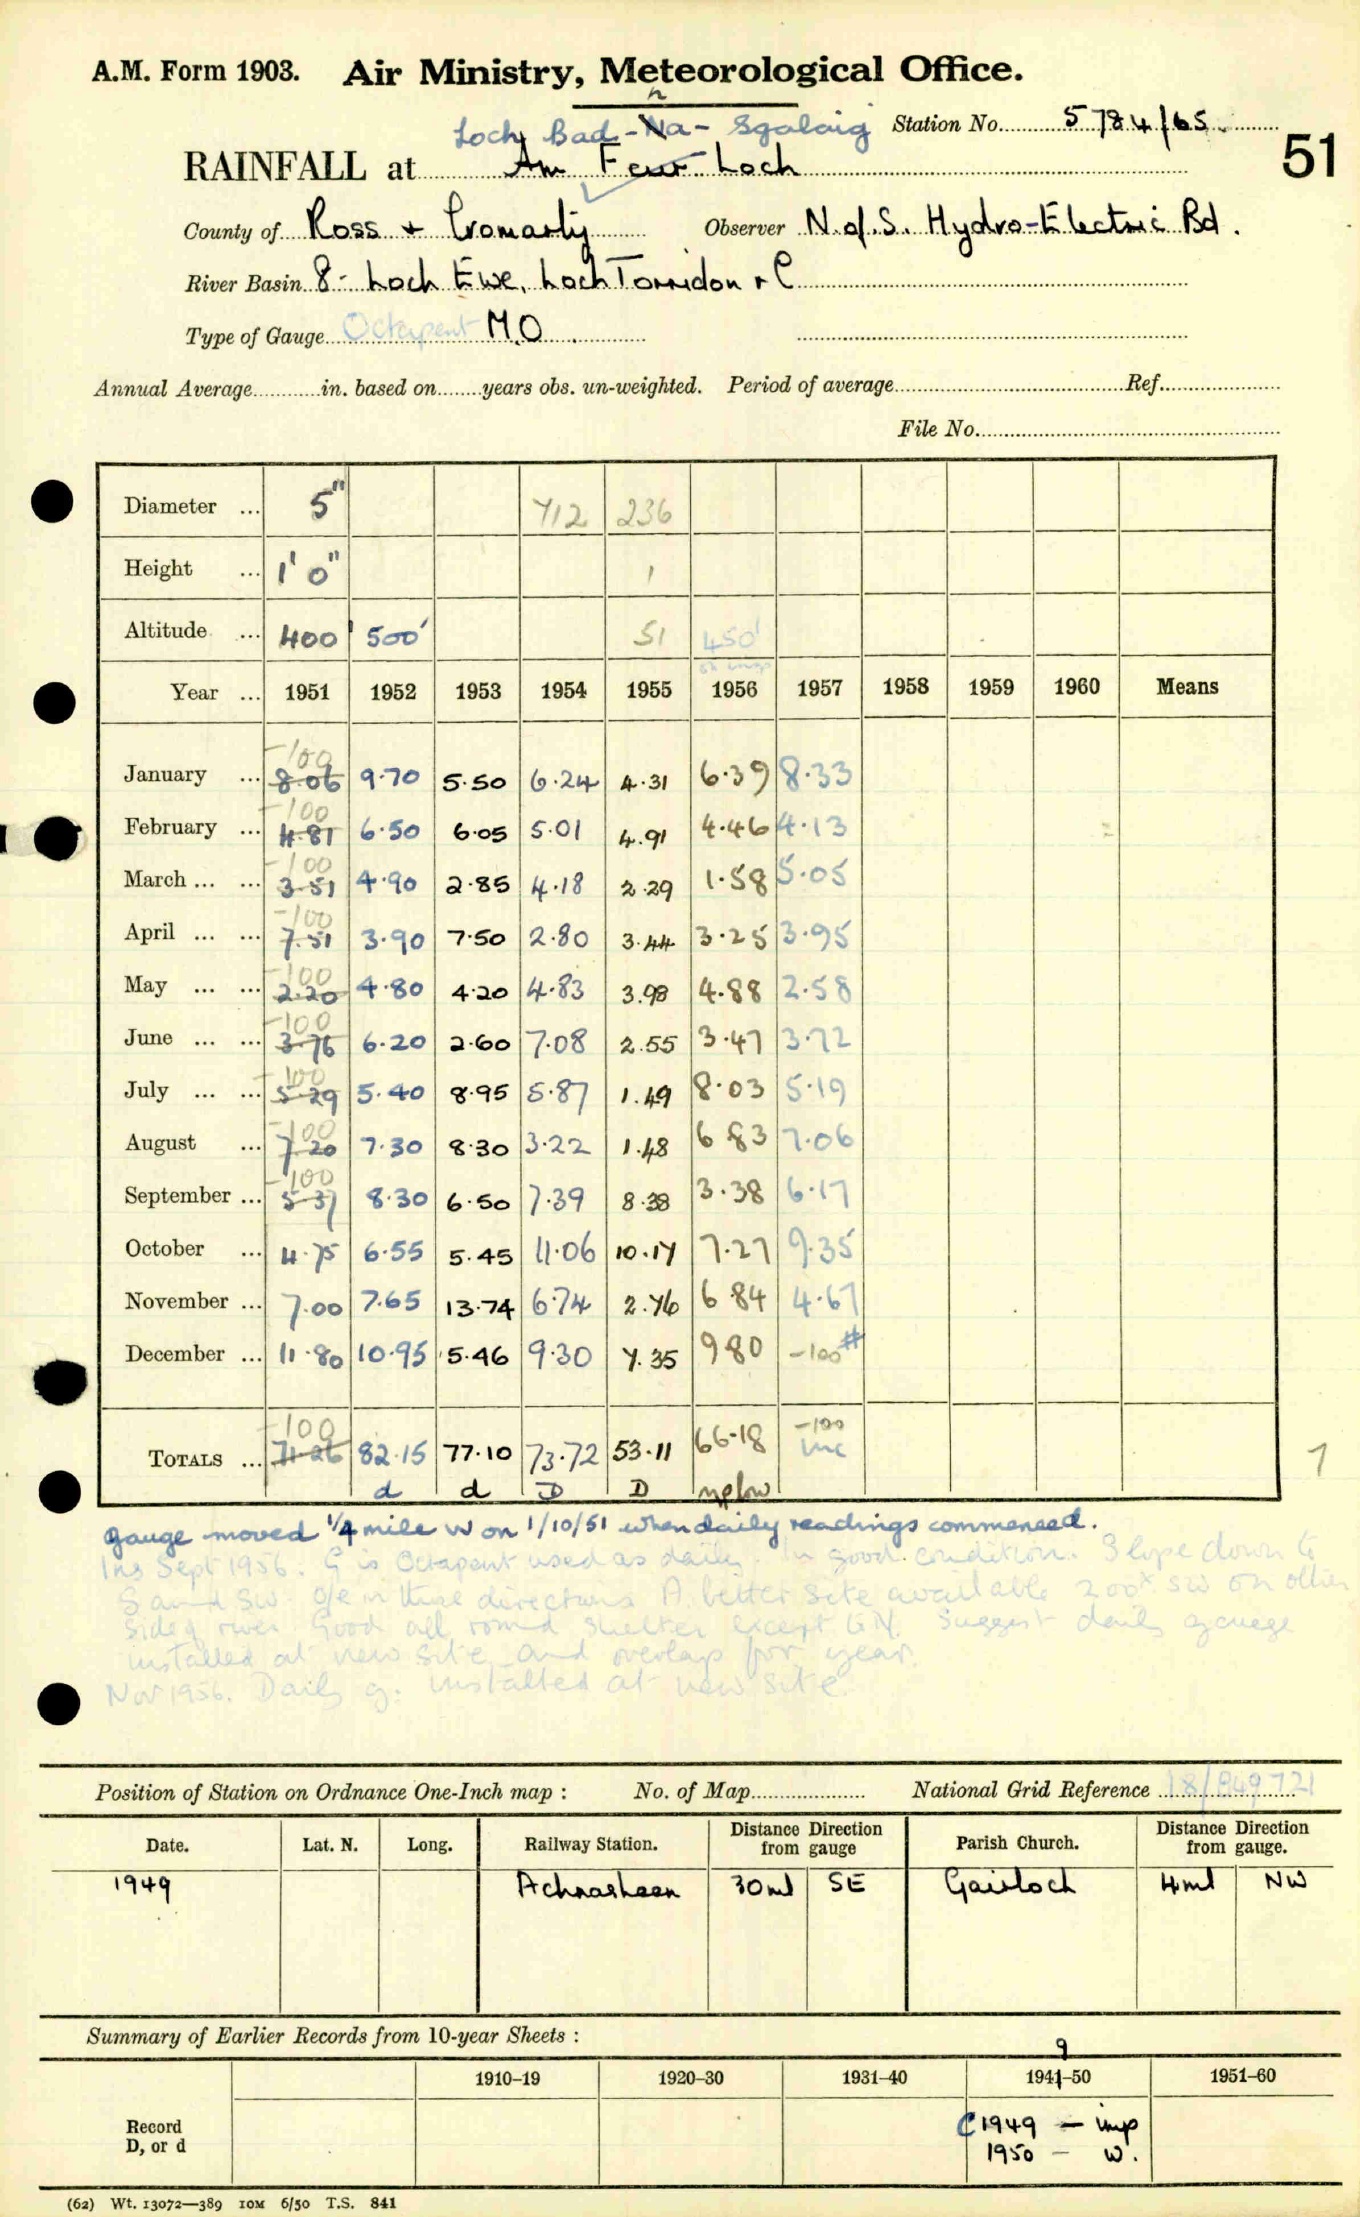 A.M. Form 1903. Air Ministry, Meteorological Office.
Loch Bad-Na-Sgalaig Station No. 5784/65
n
RAINFALL at Am Feur Loch 51
County of Ross + Cromarty Observer N. of S. Hydro-Electric Bd.
River Basin 8- Loch Ewe, Loch Torridon + C
Type of Gauge Octapent M.O
Annual Average in. based on years obs. un-weighted. Period of average Ref.
File No.
Diameter ... 5" 712 236
Height ... 1' 0" 1
Altitude ... 400' 500' 51 450'
Year ... 1951 1952 1953 1954 1955 1956 1957 1958 1959 1960 Means
-100
January ... 8.06 9.70 5.50 6.24 4.31 6.39 8.33
-100
February ... 4.81 6.50 6.05 5.01 4.91 4.46 4.13
-100
March ... ... 3.51 4.90 2.85 4.18 2.29 1.58 5.05
-100
April ... ... 7.51 3.90 7.50 2.80 3.44 3.25 3.95
-100
May ... ... 2.20 4.80 4.20 4.83 3.98 4.88 2.58
-100
June ... ... 3.76 6.20 2.60 7.08 2.55 3.47 3.72
-100
July ... ... 5.29 5.40 8.95 5.87 1.49 8.03 5.19
-100
August ... 7.20 7.30 8.30 3.22 1.48 6 83 7.06
-100
September ... 5.37 8.30 6.50 7.39 8.38 3.38 6.17
October ... 4.75 6.55 5.45 11.06 10.17 7.27 9.35
November ... 7.00 7.65 13.74 6.74 2.76 6 84 4.67
December ... 11.80 10.95 5.46 9.30 7.35 9 80 -100 #
-100 -100
TOTALS ... 71.26 82.15 77.10 73.72 53.11 66.18 inc 7
d d D D
Gauge moved 1/4 mile W on 1/10/51 when daily readings commenced.
Ins Sept 1956. G is Octapent used as daily. In good condition. Slope down to
S and SW. o/e in these directions A better site available 200x SW on other
side of river Good all round shelter except N. Suggest daily gauge
installed at new site and overlap for year.
Nov 1956. Daily g. installed at new site.
Position of Station on Ordnance One-Inch map : No. of Map National Grid Reference 18/849721
Date. Lat. N. Long. Railway Station. Distance from Direction gauge Parish Church. Distance from Direction gauge.
1949 Achnasheen 30ml SE Gairloch 4ml NW
Summary of Earlier Records from 10-year Sheets :
9
1910–19 1920–30 1931–40 1941–50 1951–60
Record C 1949 — imp
D, or d 1950 — w.
(62) Wt. 13072—389 10M 6/50 T.S. 841